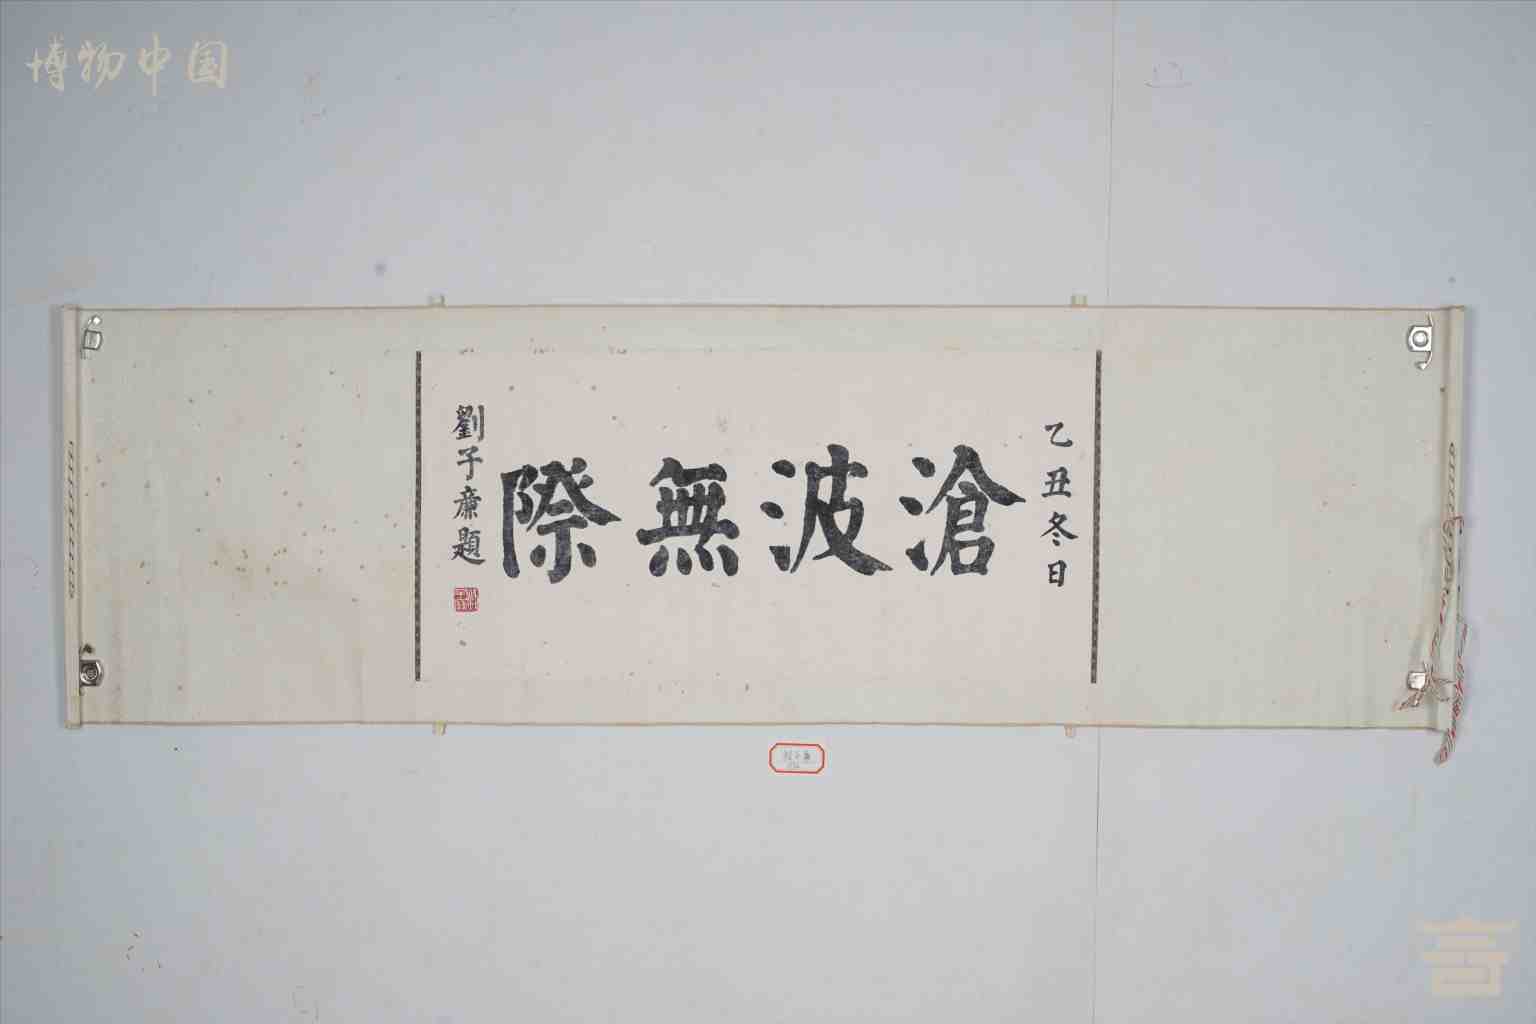 博物中国
乙丑冬日
滄波無際
劉子廉題